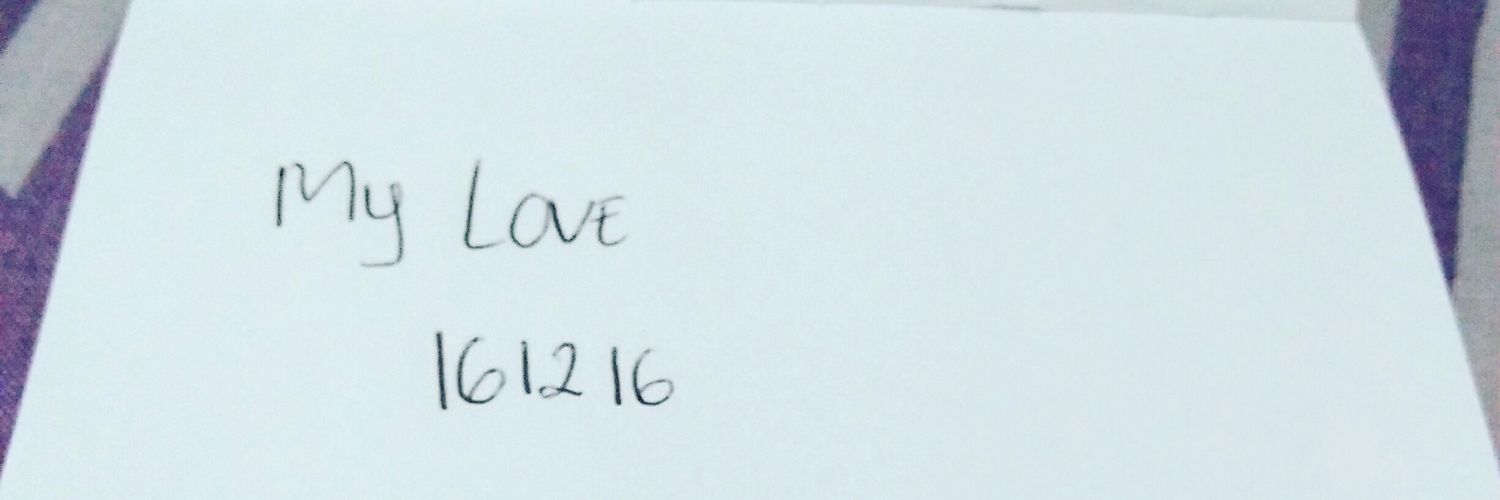 My Love
161216